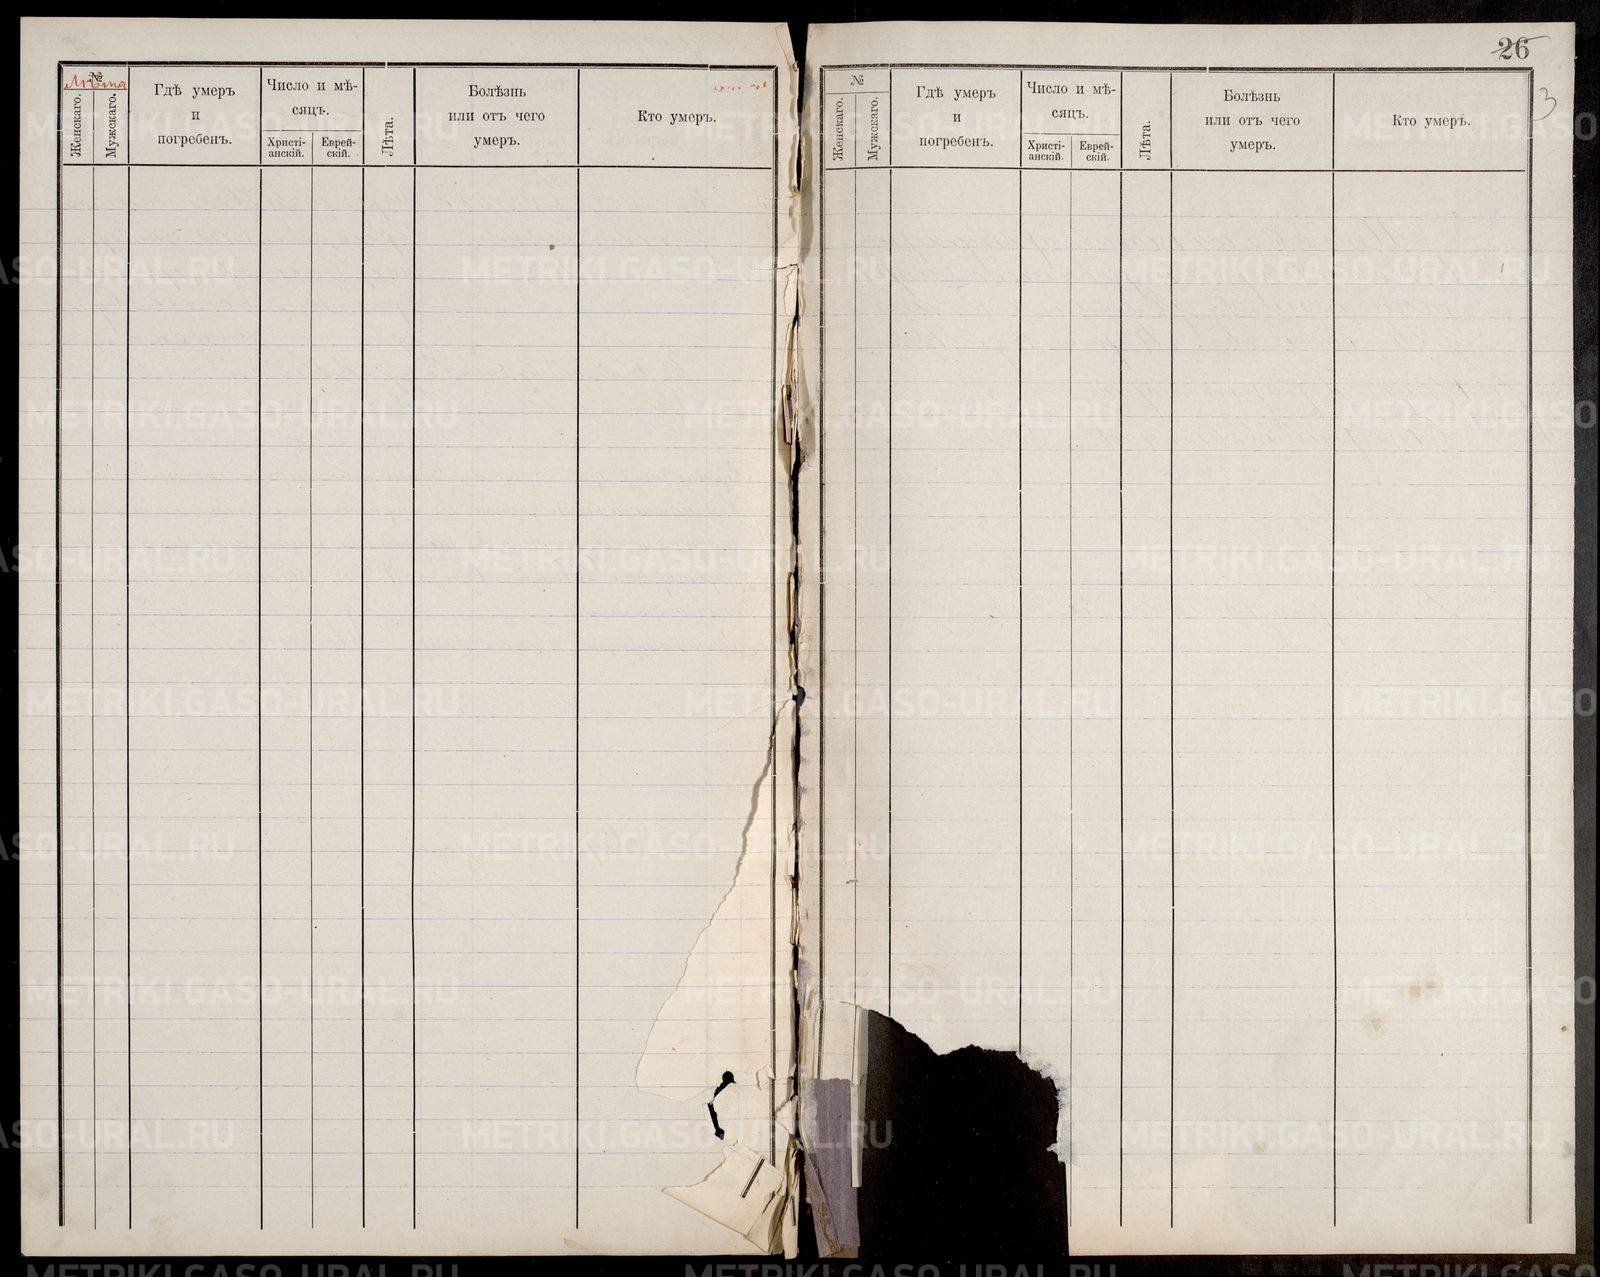 26
3
№
Женскаго.
Мужскаго.
Гдѣ умеръ
и
погребенъ.
Число и мѣ-
сяцъ.
Христі-
анскій.
Еврей-
скій.
Лѣта.
Болѣзнь
или отъ чего
умеръ.
Кто умеръ.
№
Женскаго.
Мужскаго.
Гдѣ умеръ
и
погребенъ.
Число и мѣ-
сяцъ.
Христі-
анскій.
Еврей-
скій.
Лѣта.
Болѣзнь
или отъ чего
умеръ.
Кто умеръ.
METRIKI.GASO-URAL.RU